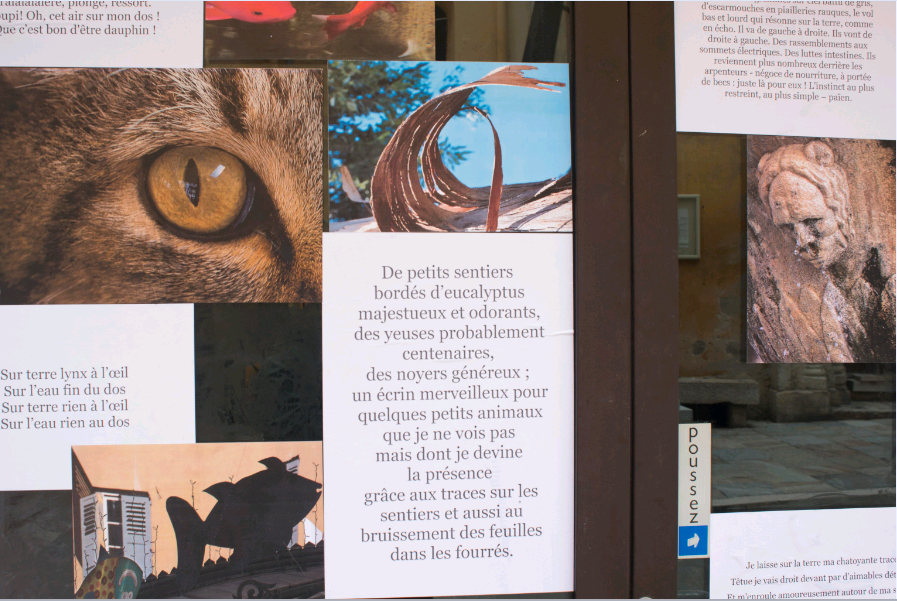 plonge, ressort.
oupi! Oh, cet air sur mon dos !
Que c'est bon d'être dauphin !
d'escarmouches en piailleries rauques, le vol
bas et lourd qui résonne sur la terre, comme
en écho. Il va de gauche à droite. Ils vont de
droite à gauche. Des rassemblements aux
sommets électriques. Des luttes intestines. Ils
reviennent plus nombreux derrière les
arpenteurs - négoce de nourriture, à portée
de becs : juste là pour eux ! L'instinct au plus
restreint, au plus simple – païen.
De petits sentiers
bordés d'eucalyptus
majestueux et odorants,
des yeuses probablement
centenaires,
des noyers généreux ;
un écrin merveilleux pour
quelques petits animaux
que je ne vois pas
mais dont je devine
la présence
grâce aux traces sur les
sentiers et aussi au
bruissement des feuilles
dans les fourrés.
Sur terre lynx à l'œil
Sur l'eau fin du dos
Sur terre rien à l'œil
Sur l'eau rien au dos
poussez
Je laisse sur la terre ma chatoyante trac
Têtue je vais droit devant par d'aimables dét
Et m'enroule amoureusement autour de ma s